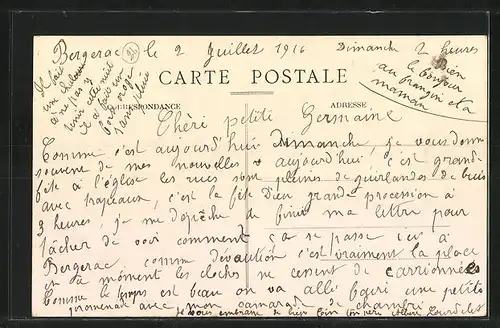 Bergerac le 2 Juillet 1916 Dimanche 2 heures
24
Il fait
une chaleur
à ne pas y
tenir cette nuit
il a fait un
gros orage
sans pluie
Bien
le bonjour
au françois et a
maman
CARTE POSTALE
CORRESPONDANCE ADRESSE
Chèri petite Germaine
Comme c'est aujourd'hui Dimanche, je vous donne
souvene de mes nouvelles aujourd'hui, c'est grande
fête à l'église les rues sont pleines de guirlandes de buis
avec drapeaux, c'est la fête Dieu grande procession à
3 heures, je me dépêche de finir ma lettre pour
tâcher de voir comment ça se passe ici à
Bergerac, comme devaution c'est vraiment la place
en ce moment les cloches ne cessent de carrionnées
Comme le temps est beau on va allé fairi une petite
promenade avec mon camarade de chambre
je vous embrasse de bien loin ton père